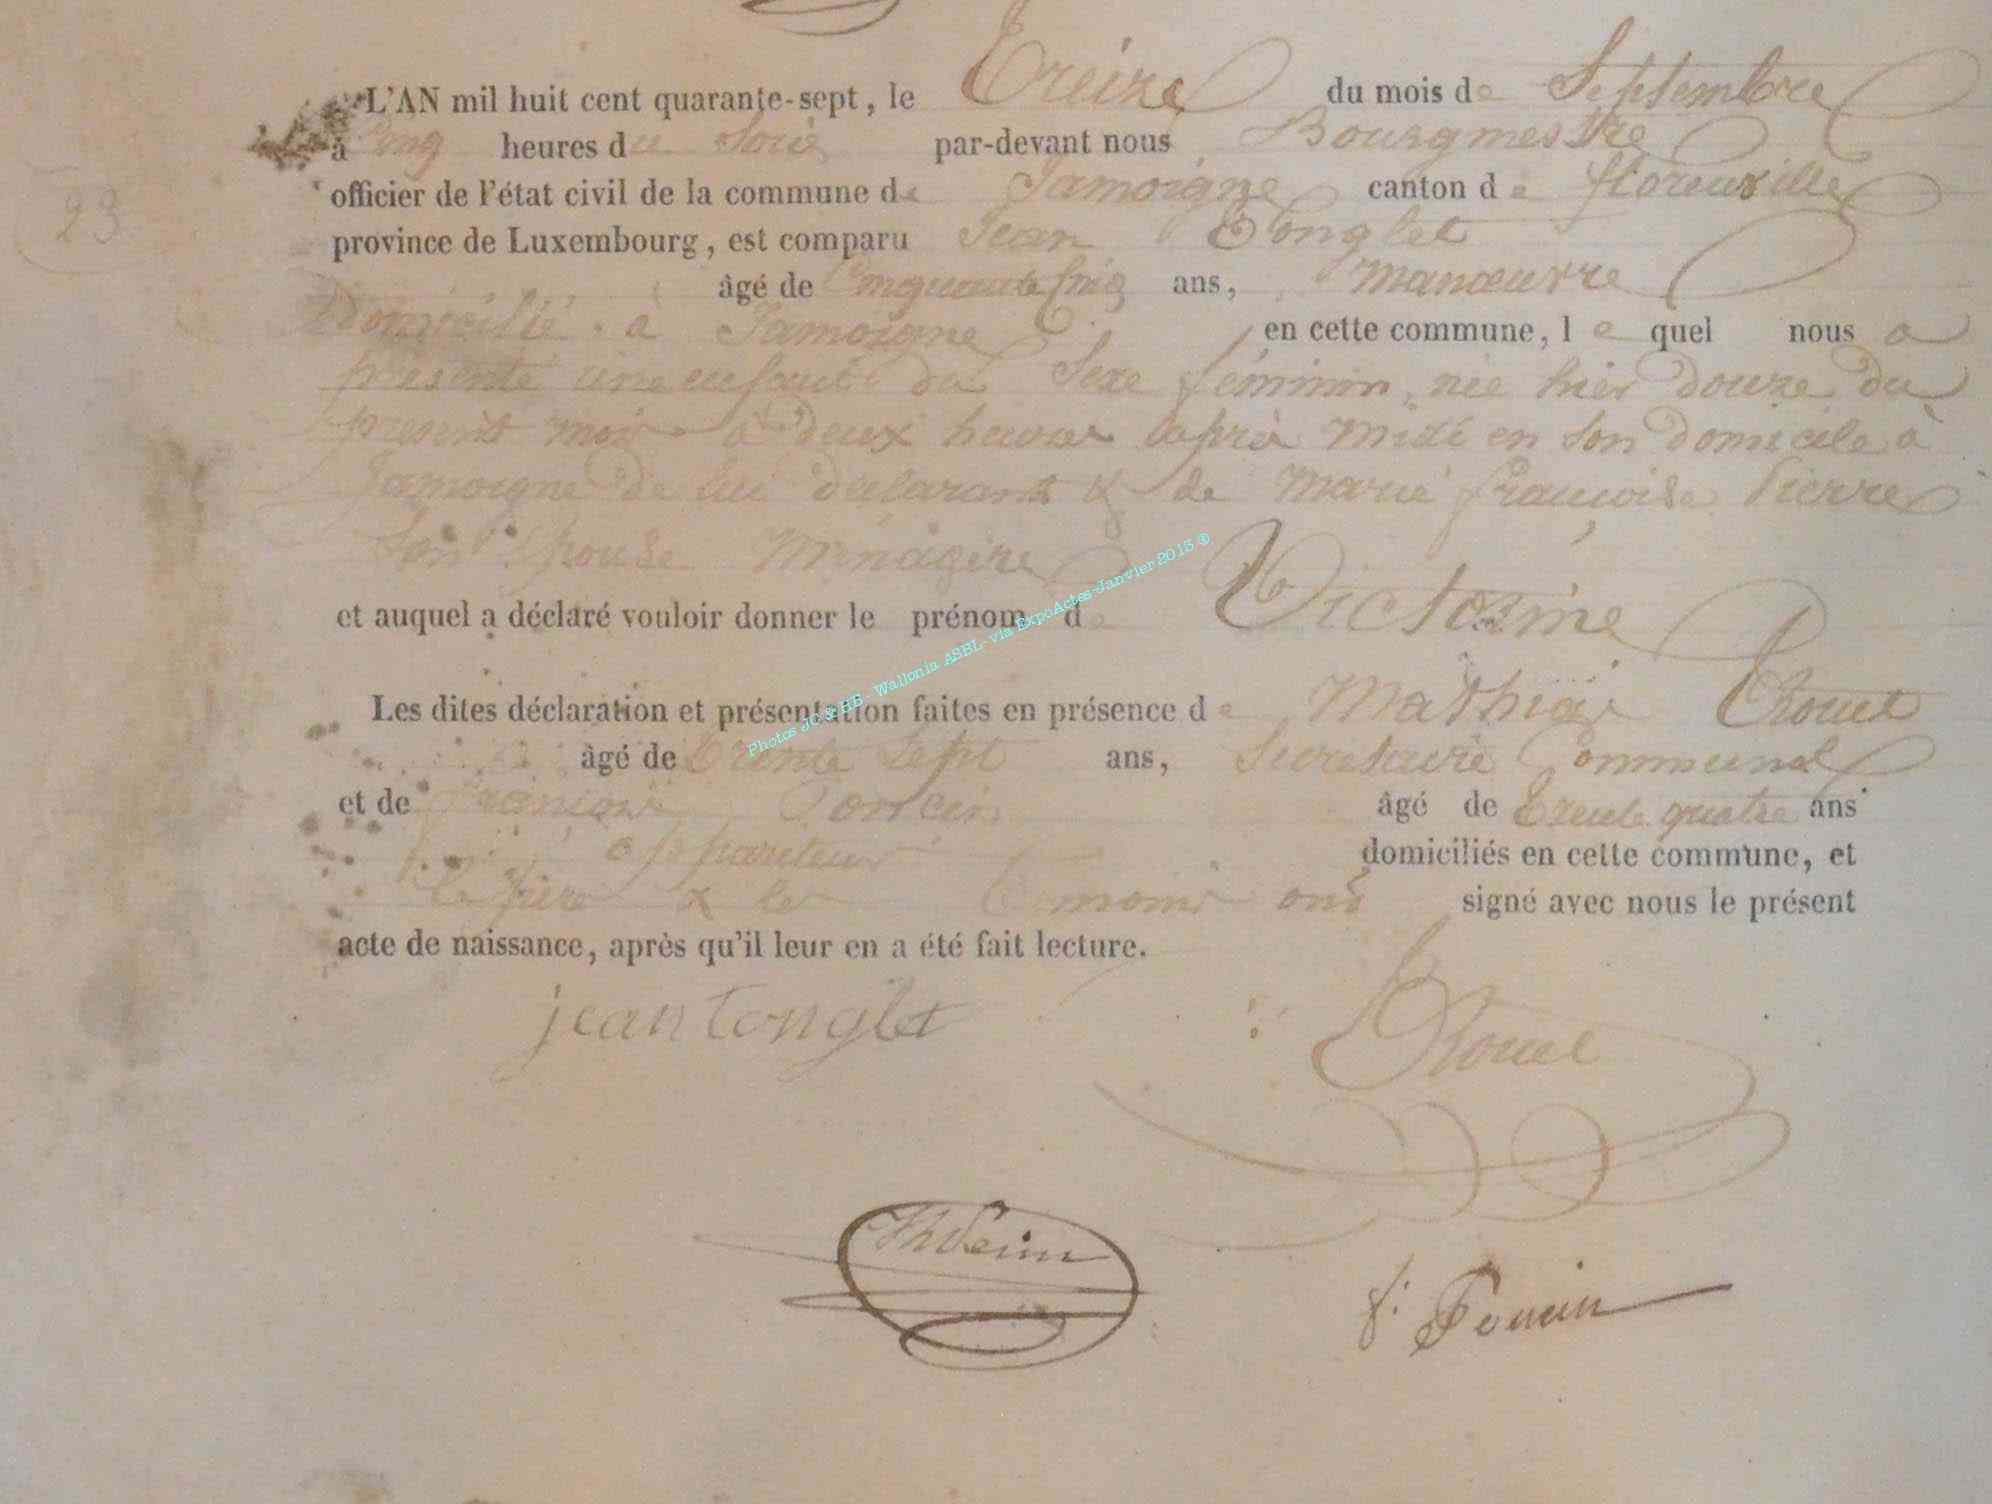 L'AN mil huit cent quarante-sept, le Treize du mois de Septembre
à Cinq heures du Soir par-devant nous Bourgmestre
23
officier de l'état civil de la commune de Jamoigne canton de florenville
province de Luxembourg, est comparu Jean Tonglet
âgé de Cinquante Cinq ans, manœuvre
Domicilié à Jamoigne en cette commune, lequel nous a
présenté une enfant du Sexe féminin, née hier douze du
présent mois à deux heures après midi en son domicile à
Jamoigne de lui déclarant & de Marie françoise Pierre
Son Épouse Ménagère
et auquel a déclaré vouloir donner le prénom de Victorine
Les dites déclaration et présentation faites en présence de Mathias
âgé de Trente Sept ans, Secrétaire Communal
et de françois Poncin âgé de Trente quatre ans
appariteur domiciliés en cette commune, et
le père & les témoins ont signé avec nous le présent
acte de naissance, après qu'il leur en a été fait lecture.
jean tonglet
f. Poncin
Photos JC & BB - Wallonia ASBL - via ExpoActes-Janvier 2013 ®